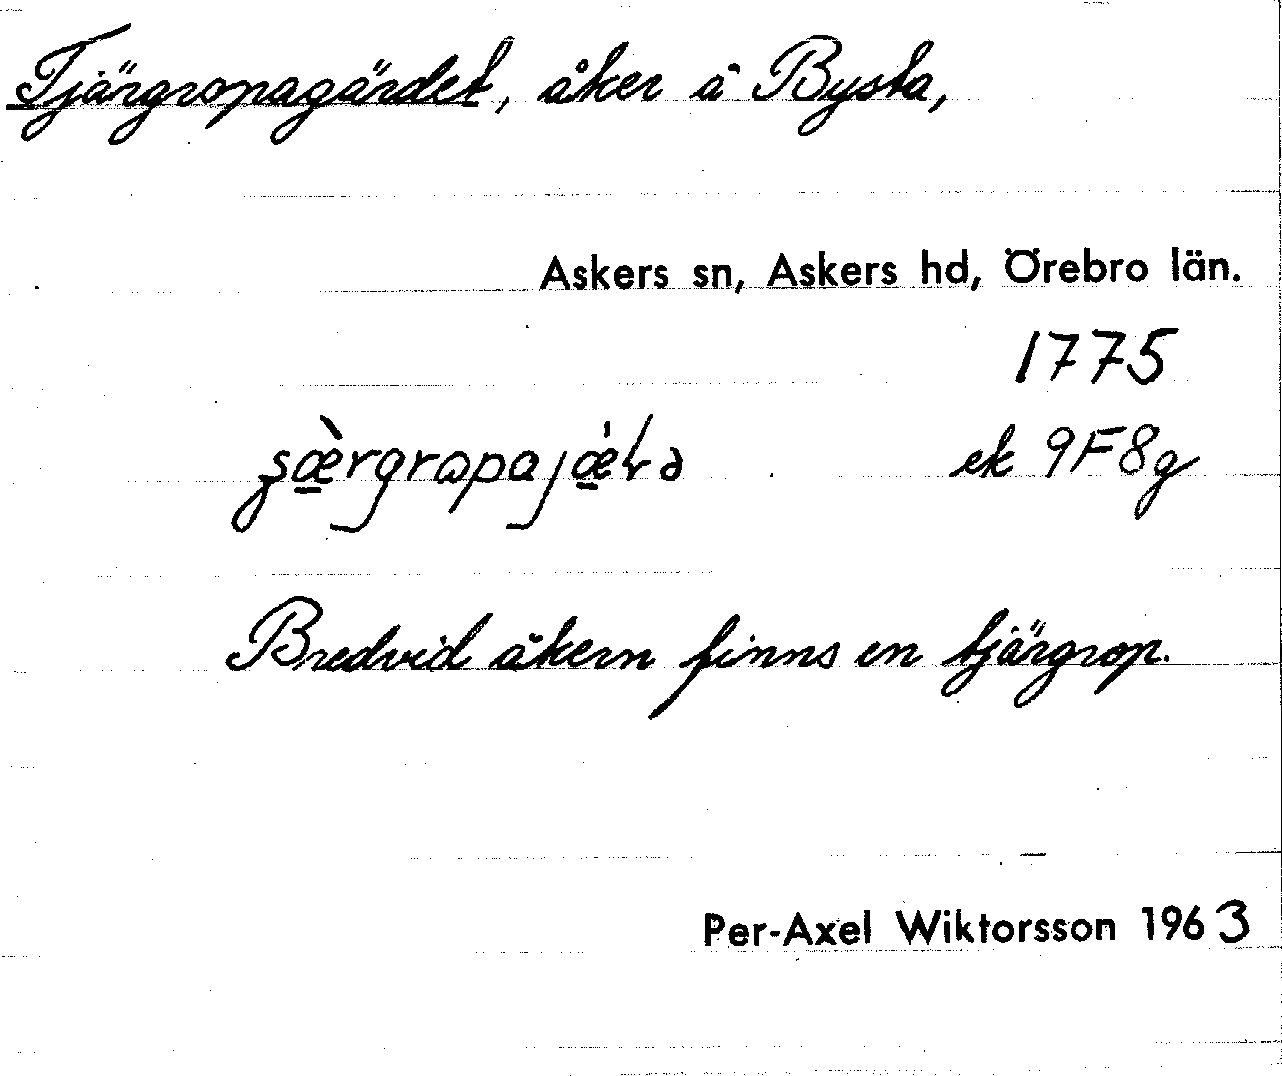 Tjärgropagärdet, åker å Bysta,
Askers sn, Askers hd, Örebro län.
1775
ek 9F8g
Bredvid åkern finns en tjärgrop.
Per-Axel Wiktorsson 1963